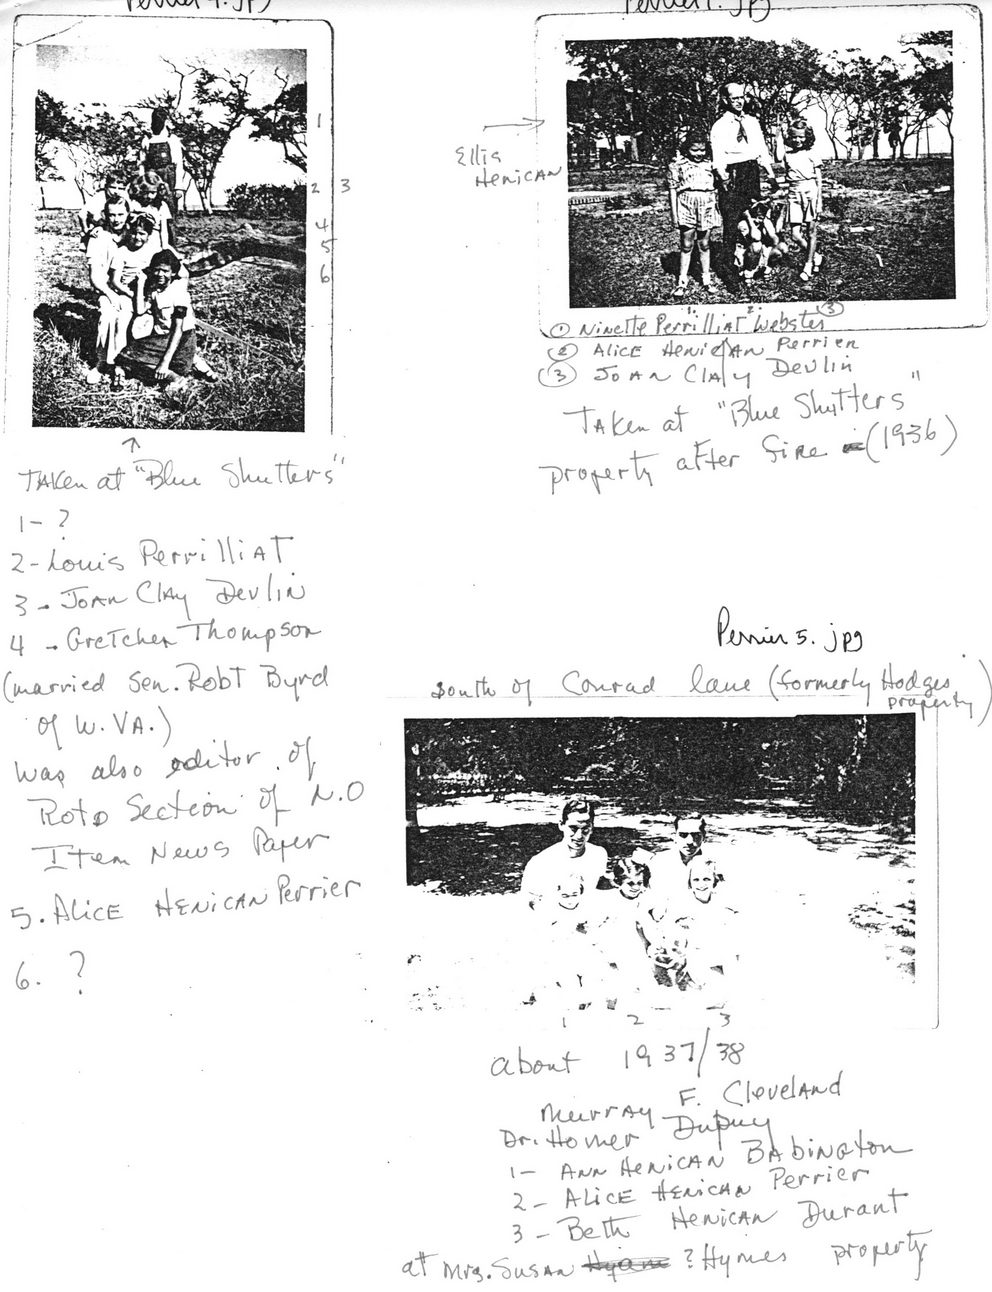 Perrier 4. jpg
1
2 3
4
5
6
↑
TAKen at "Blue Shutters"
1- ?
2- Louis PerrilliAT
3 - JOAN Clay Devlin
4 - GreTchen Thompson
(married Sen. RobT Byrd
of W. VA.)
was also editor of
Roto Section of N.O
Item News Paper
5. Alice HENICAN Perrier
6. ?
Perrier 1. jpg
Ellis
HENICAN
1. 2. ③
① NineTTe PerrilliaT Webster
② Alice HeniCAN Perrier
③ JOAN Clay Devlin
TAKen at "Blue Shutters"
property after fire (1936)
Perrier 5. jpg
South of Conrad lane (formerly Hodges
property)
1 2 3
about 1937/38
Murray F. Cleveland
Dr. Homer Dupuy
1- ANN HENICAN BAbington
2- Alice HENICAN Perrier
3- Beth Henican Durant
at Mrs. SUSAN ? Hymes property